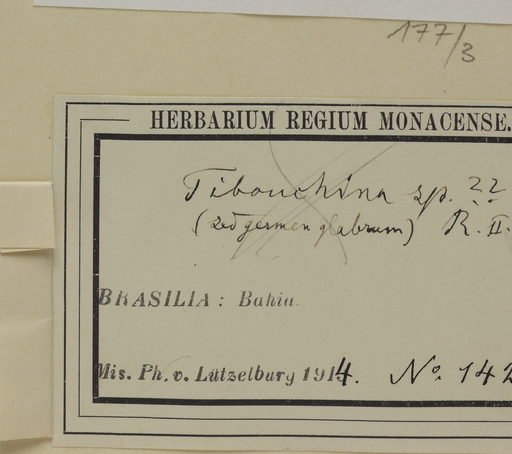 177/3
HERBARIUM REGIUM MONACENSE.
Tibouchina sp. 22
(sed germen glabrum) R. II.
BRASILIA: Bahia.
Mis. Ph. v. Lützelburg 1914. No. 142